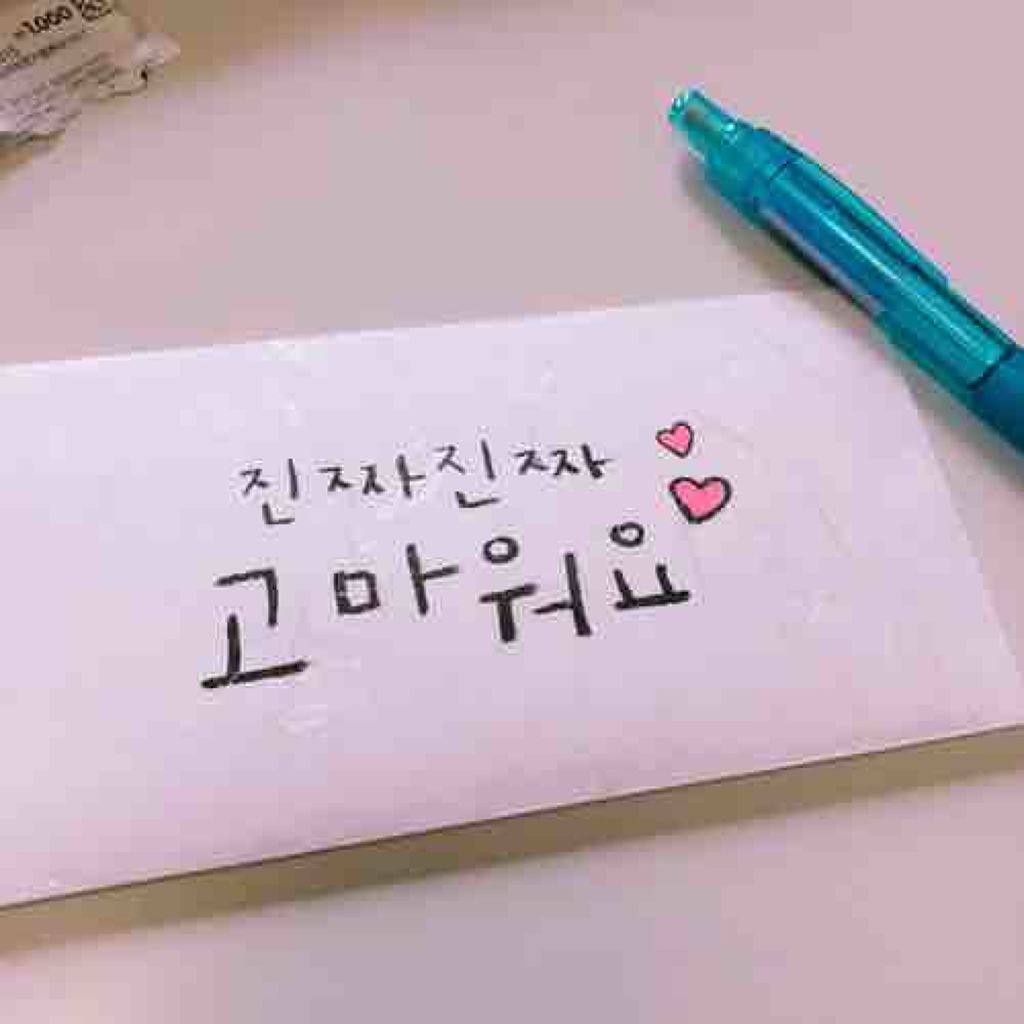 1,000
진짜진짜
고마워요